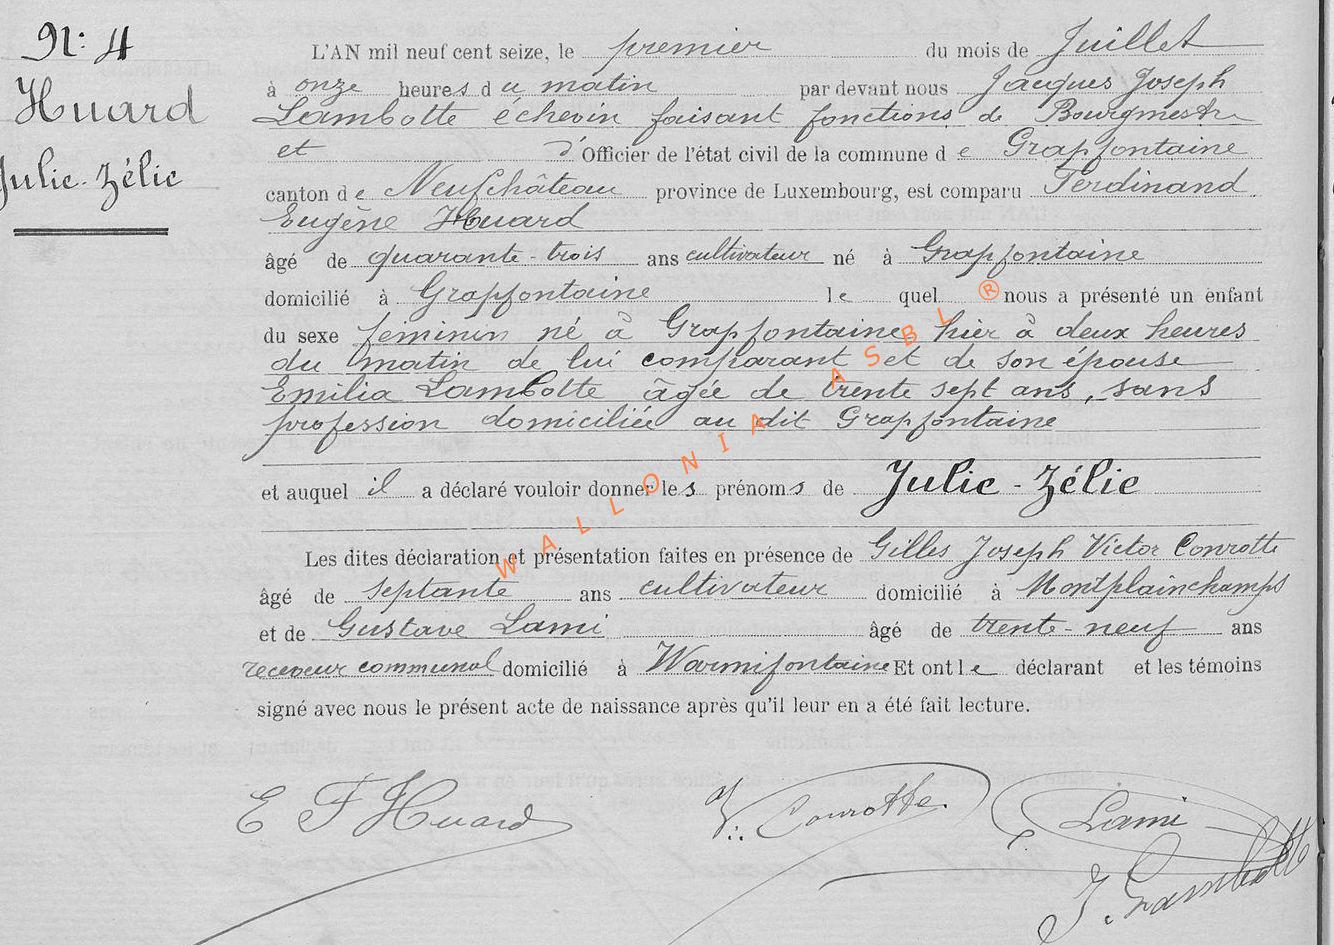 N°: 4
Huard
Julie-Zélie
L'AN mil neuf cent seize, le premier du mois de Juillet
à onze heures du matin par devant nous Jacques Joseph
Lambotte échevin faisant fonctions de Bourgmestre
et d'Officier de l'état civil de la commune de Grapfontaine
canton de Neufchâteau province de Luxembourg, est comparu Ferdinand
Eugène Huard
âgé de quarante-trois ans cultivateur né à Grapfontaine
domicilié à Grapfontaine lequel nous a présenté un enfant
du sexe féminin né à Grapfontaine hier à deux heures
du matin de lui comparant et de son épouse
Emilia Lambotte âgée de trente sept ans, sans
profession domiciliée au dit Grapfontaine
et auquel il a déclaré vouloir donner les prénoms de Julie-Zélie
Les dites déclaration et présentation faites en présence de Gilles Joseph Victor Conrotte
âgé de septante ans cultivateur domicilié à Montplainchamps
et de Gustave Lami âgé de trente-neuf ans
receveur communal domicilié à Warmifontaine Et ont le déclarant et les témoins
signé avec nous le présent acte de naissance après qu'il leur en a été fait lecture.
E F Huard V. Conrotte. Lami
J. Lambotte
WALLONIA ASBL ®